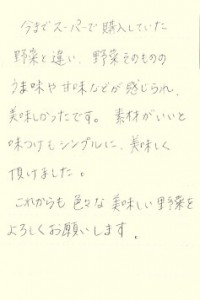 今までスーパーで購入していた
野菜と違い、野菜そのものの
うま味や甘味などが感じられ、
美味しかったです。素材がいいと
味つけもシンプルに、美味しく
頂けました。
これからも色々な美味しい野菜を
よろしくお願いします。